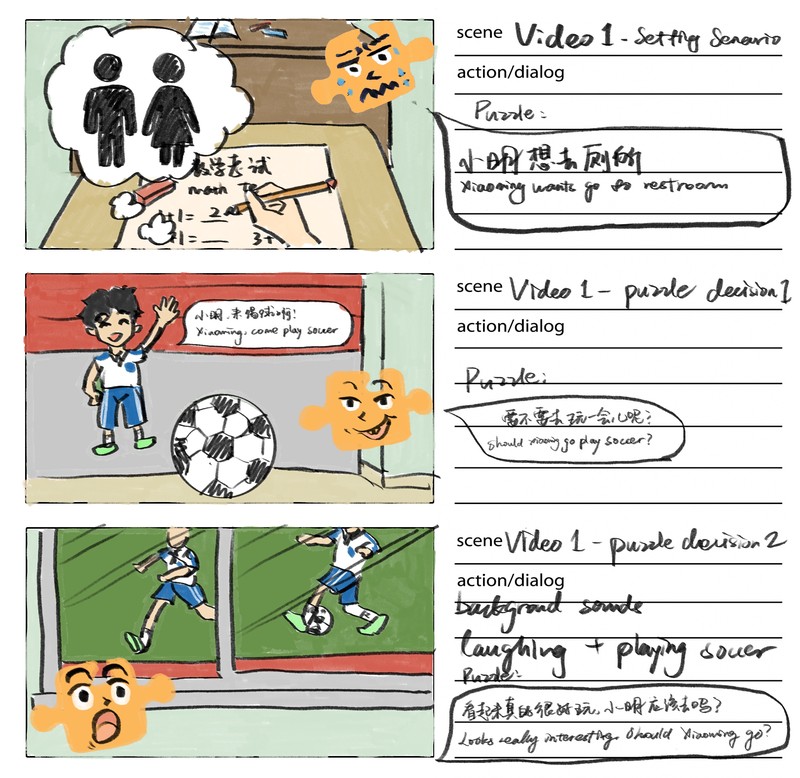 scene Video 1 - Setting Senario
action/dialog
Puzzle:
小明想去厕所
Xiaoming wants go to restroom
数学考试
math te
1+1= 2
1= 3+
scene Video 1 - puzzle decision 1
action/dialog
小明，来踢球啊！
Xiaoming, come play soccer
Puzzle:
要不要去玩一会儿呢？
Should xiaoming go play soccer?
scene Video 1 - puzzle decision 2
action/dialog
background sounds
laughing + playing soccer
Puzzle:
看起来真的很好玩，小明应该去吗？
Looks really interesting. Should Xiaoming go?